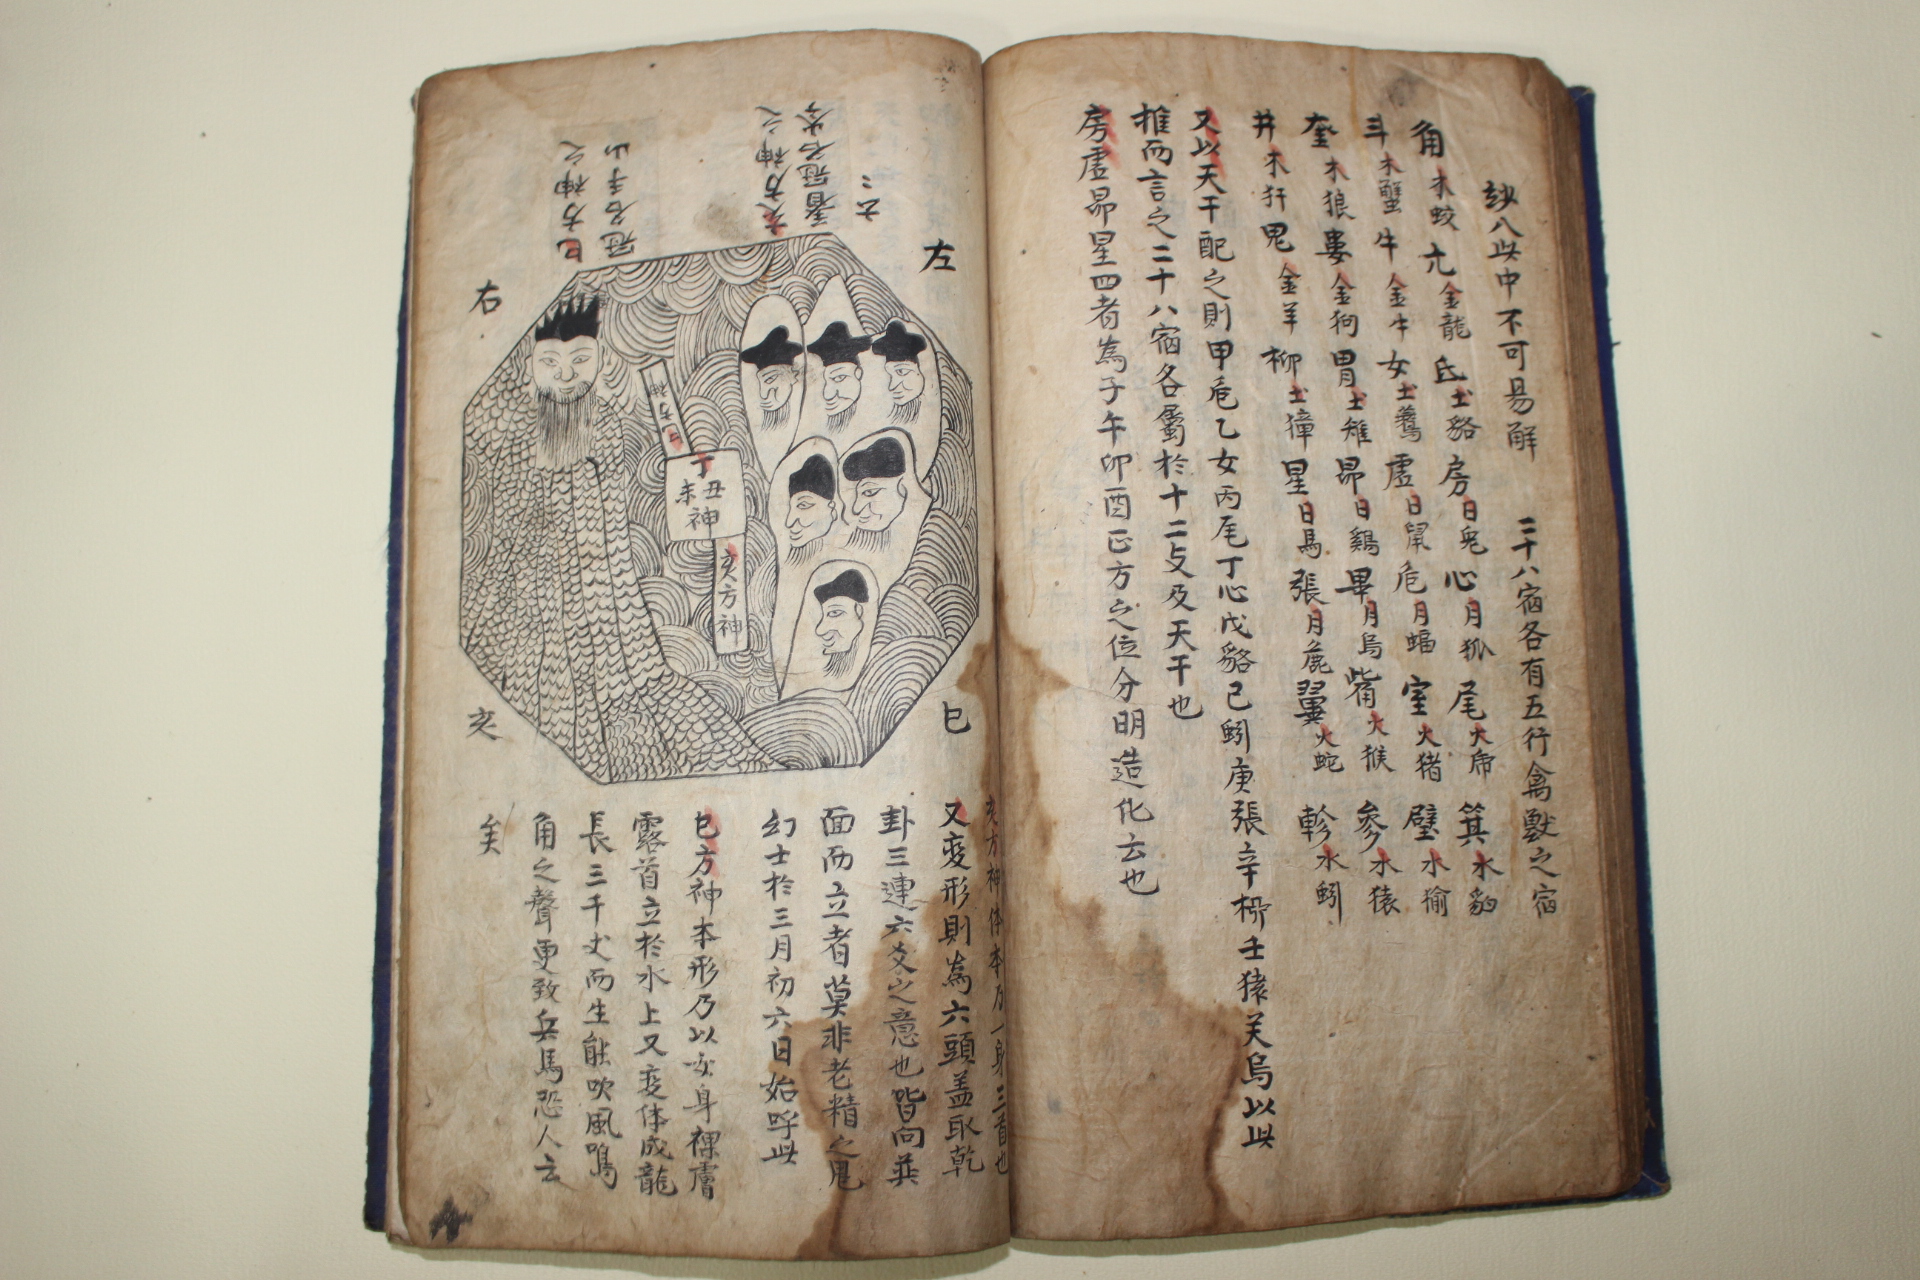 紗八此中不可易解　二十八宿各有五行禽獸之宿
角木蛟亢金龍氐土貉房日兎心月狐尾火乕箕水豹
斗木蟹牛金牛女土鷰虛日鼠危月蝠室火猪壁水㺄
奎木狼婁金狗胃土雉昴日鷄畢月烏觜火猴參水猿
井木犴鬼金羊柳土獐星日馬張月鹿翼火蛇軫水蚓
又以天干配之則甲危乙女丙尾丁心戊貉己蚓庚張辛柳壬猿癸烏以此
推而言之二十八宿各屬於十二支及天干也
房虛昴星四者為子午卯酉正方之位分明造化云也
左
右
巳
亥
六二
亥方神之
着冠名
巳方神之
冠名手山
巳方神
子
丑
未
神
亥方神
亥方神体本乃一身三首也
又変形則為六頭盖取乾
卦三連六爻之意也皆向並
面而立者莫非老精之鬼
幻士於三月初六日始呼此
巳方神本形乃以女身裸膚
露首立於水上又変体成龍
長三千丈而生能吹風鳴
角之聲更致兵馬恐人云
矣